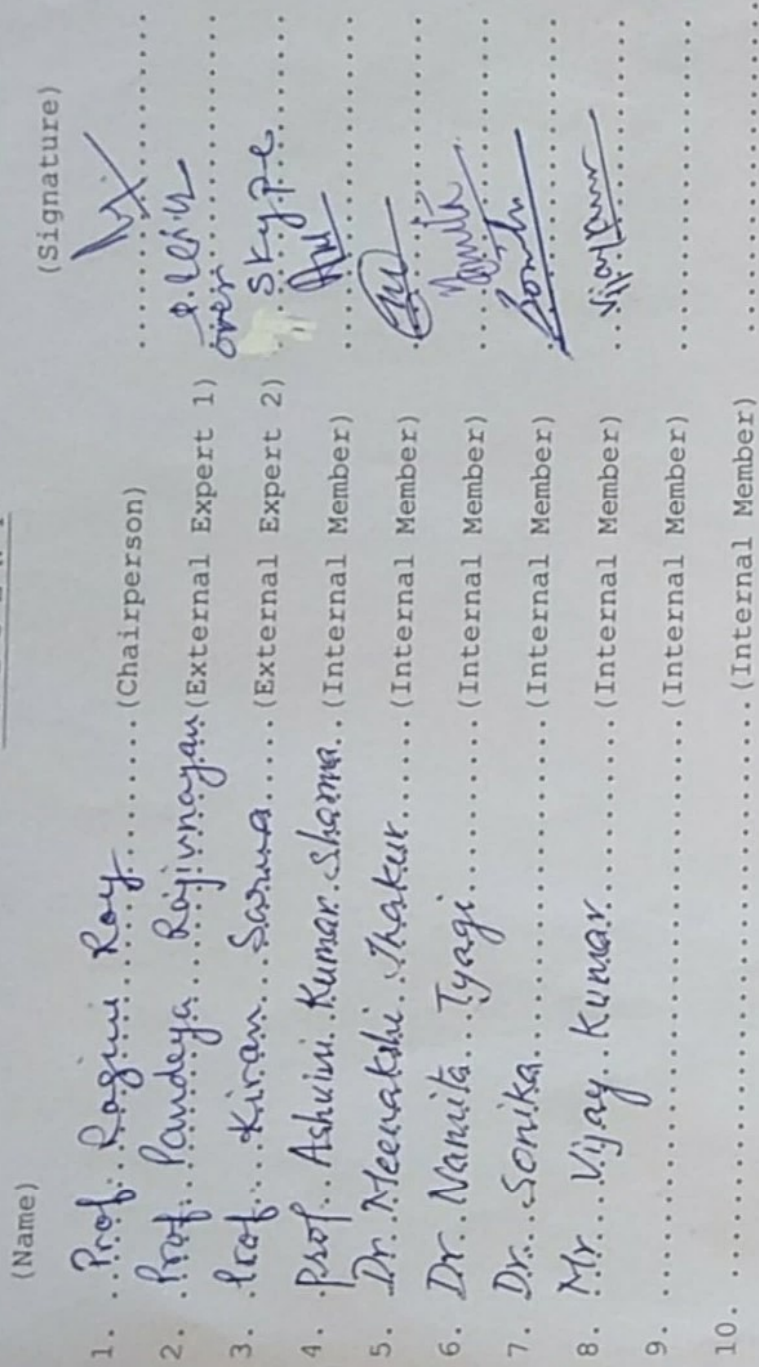 (Name) (Signature)
1. Prof. Ragini Roy (Chairperson)
2. Prof. Pandeya Rajivnayan (External Expert 1)
over
3. Prof. Kiran Sarma (External Expert 2) Skype
4. Prof. Ashwini Kumar Sharma (Internal Member)
5. Dr. Meenakshi Thakur (Internal Member)
6. Dr. Namita Tyagi (Internal Member) Namita
7. Dr. Sonika (Internal Member)
8. Mr. Vijay Kumar (Internal Member) Vijay Kumar
9. (Internal Member)
10. (Internal Member)